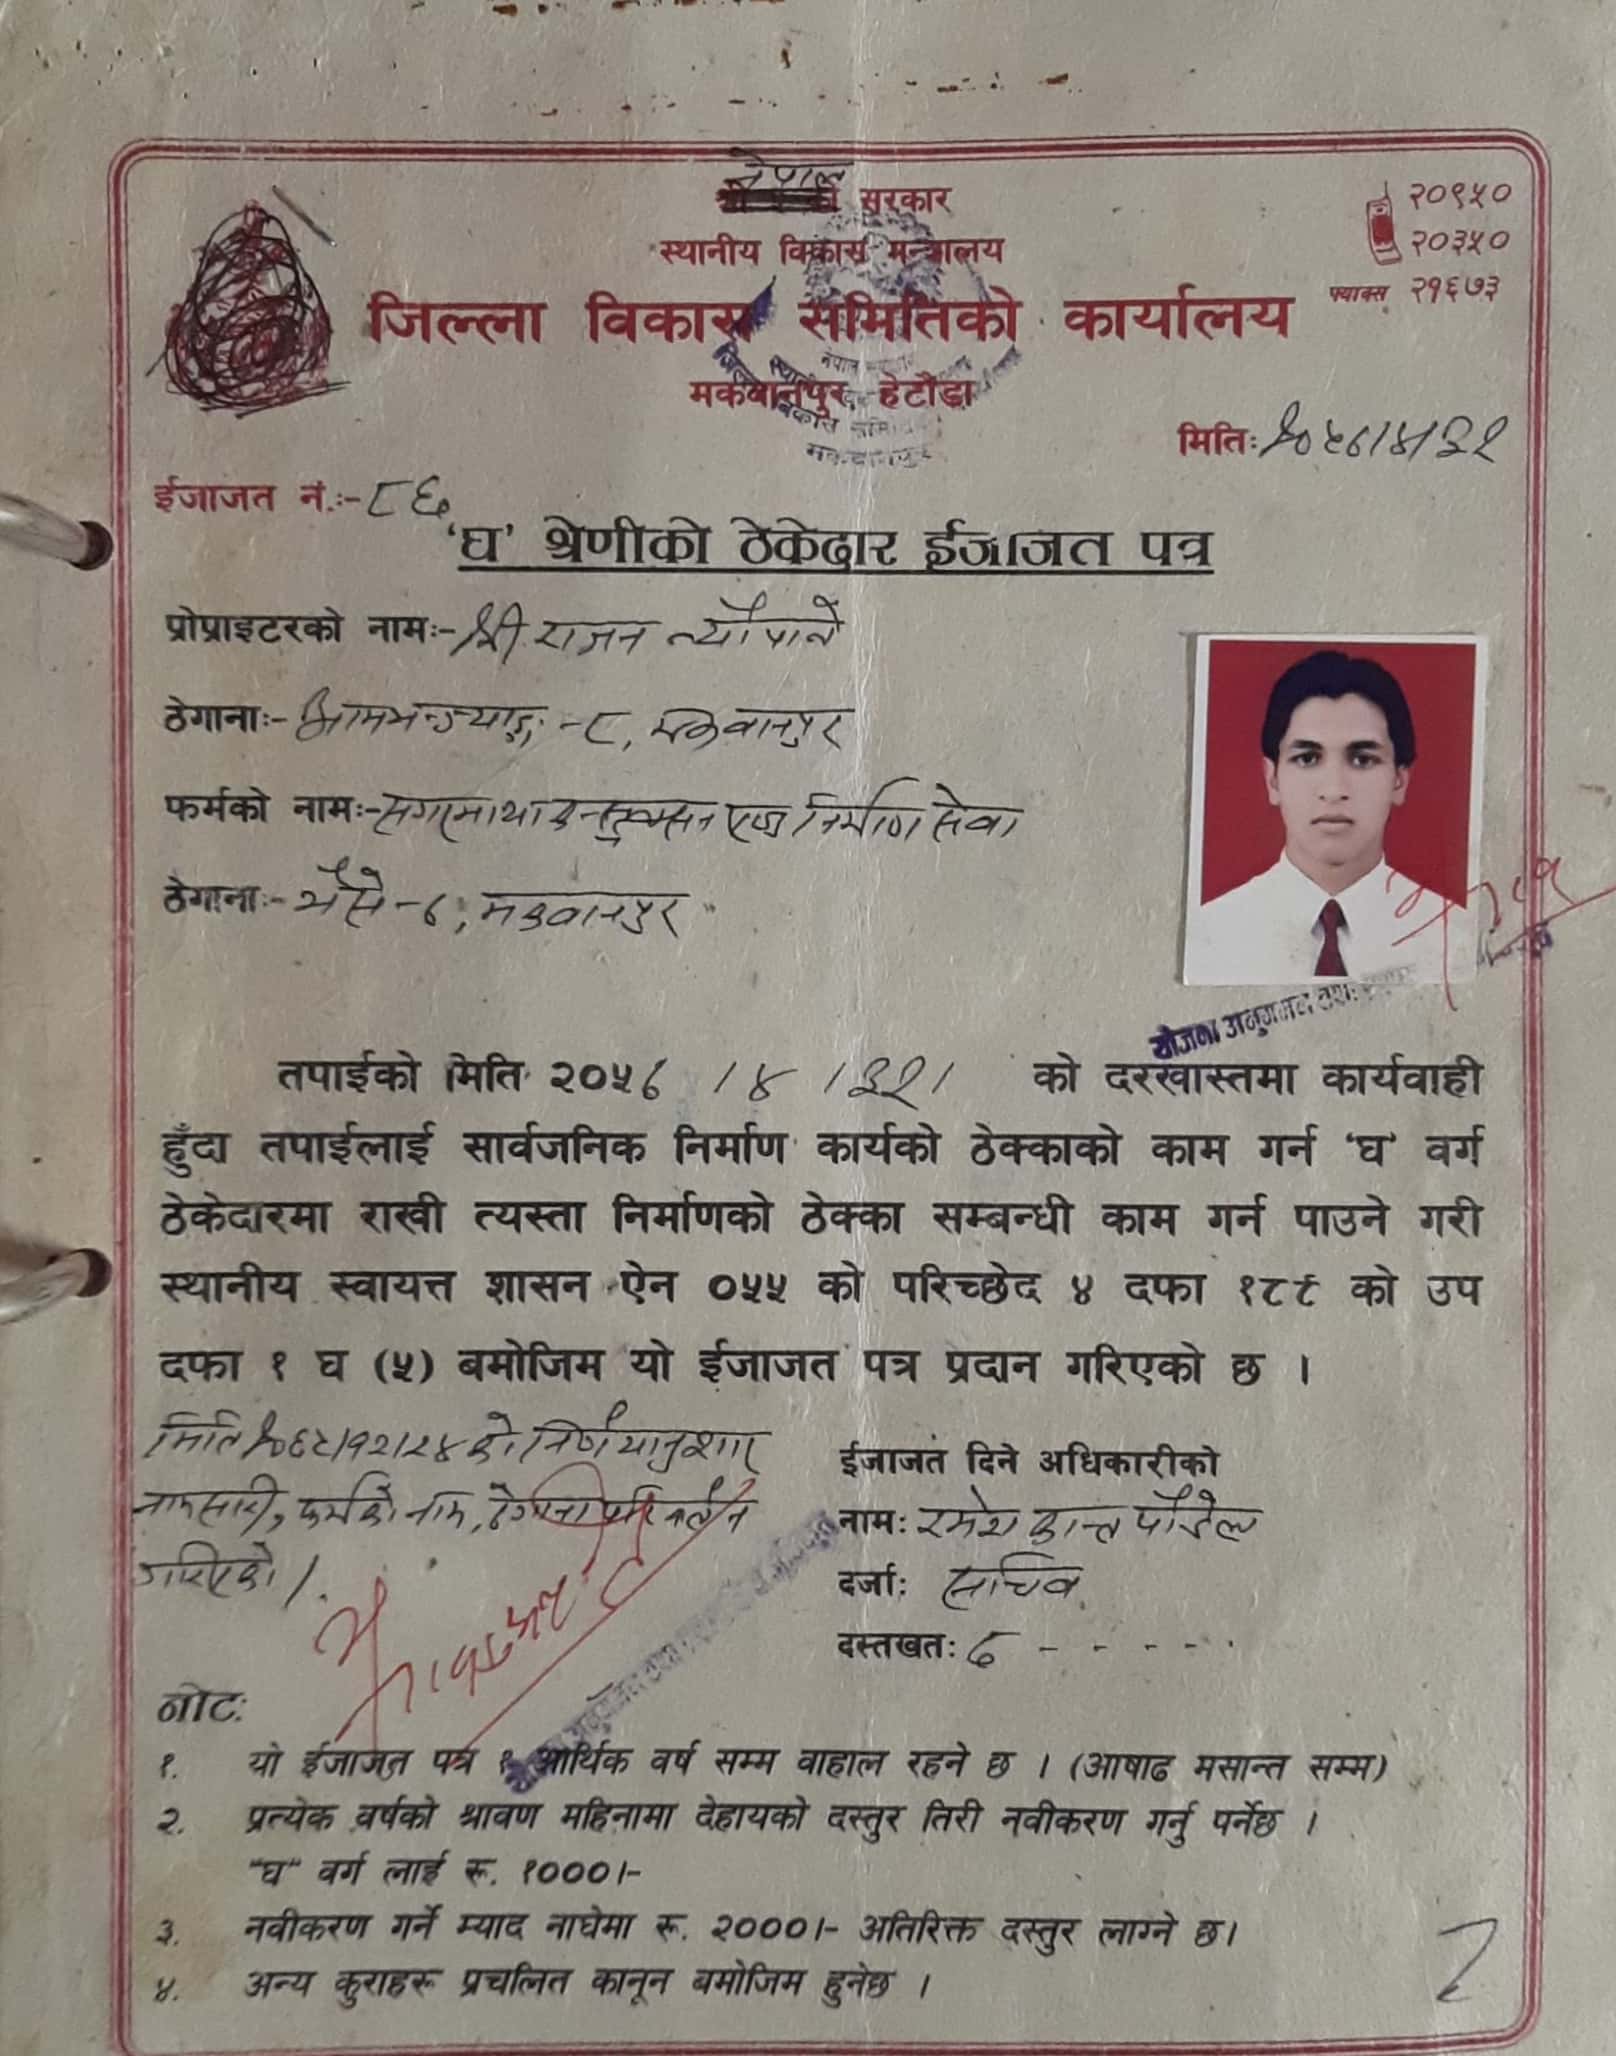 नेपाल
सरकार
स्थानीय विकास मन्त्रालय
जिल्ला विकास समितिको कार्यालय
मकवानपुर, हेटौडा
२०९५०
२०३५०
फ्याक्स २१६७३
मितिः २०५८/४/३२
ईजाजत नं.:- ८६
'घ' श्रेणीको ठेकेदार ईजाजत पत्र
प्रोप्राइटरको नामः- श्री राजन न्यौपाने
ठेगानाः- आमभन्ज्याङ्ग -८, मकवानपुर
फर्मको नामः- सगरमाथा कन्स्ट्रक्सन एण्ड निर्माण सेवा
ठेगानाः- भैंसे -८, मकवानपुर
योजना अनुगमन तथा
तपाईको मिति २०५८ /४ /३२/ को दरखास्तमा कार्यवाही
हुँदा तपाईलाई सार्वजनिक निर्माण कार्यको ठेक्काको काम गर्न 'घ' वर्ग
ठेकेदारमा राखी त्यस्ता निर्माणको ठेक्का सम्बन्धी काम गर्न पाउने गरी
स्थानीय स्वायत्त शासन ऐन ०५५ को परिच्छेद ४ दफा १८९ को उप
दफा १ घ (५) बमोजिम यो ईजाजत पत्र प्रदान गरिएको छ ।
मिति २०६८/१२/२४ को निर्णयानुशार
नामसारी, फर्मको नाम, ठेगाना परिवर्तन
गरिएको ।
ईजाजत दिने अधिकारीको
नामः रमेश कान्त पौडेल
दर्जाः सचिव
दस्तखतः द - - - - -
नोटः
१. यो ईजाजत पत्र १ आर्थिक वर्ष सम्म वाहाल रहने छ । (आषाढ मसान्त सम्म)
२. प्रत्येक वर्षको श्रावण महिनामा देहायको दस्तुर तिरी नवीकरण गर्नु पर्नेछ ।
"घ" वर्ग लाई रू. १०००।-
३. नवीकरण गर्ने म्याद नाघेमा रू. २०००।- अतिरिक्त दस्तुर लाग्ने छ।
४. अन्य कुराहरू प्रचलित कानून बमोजिम हुनेछ ।